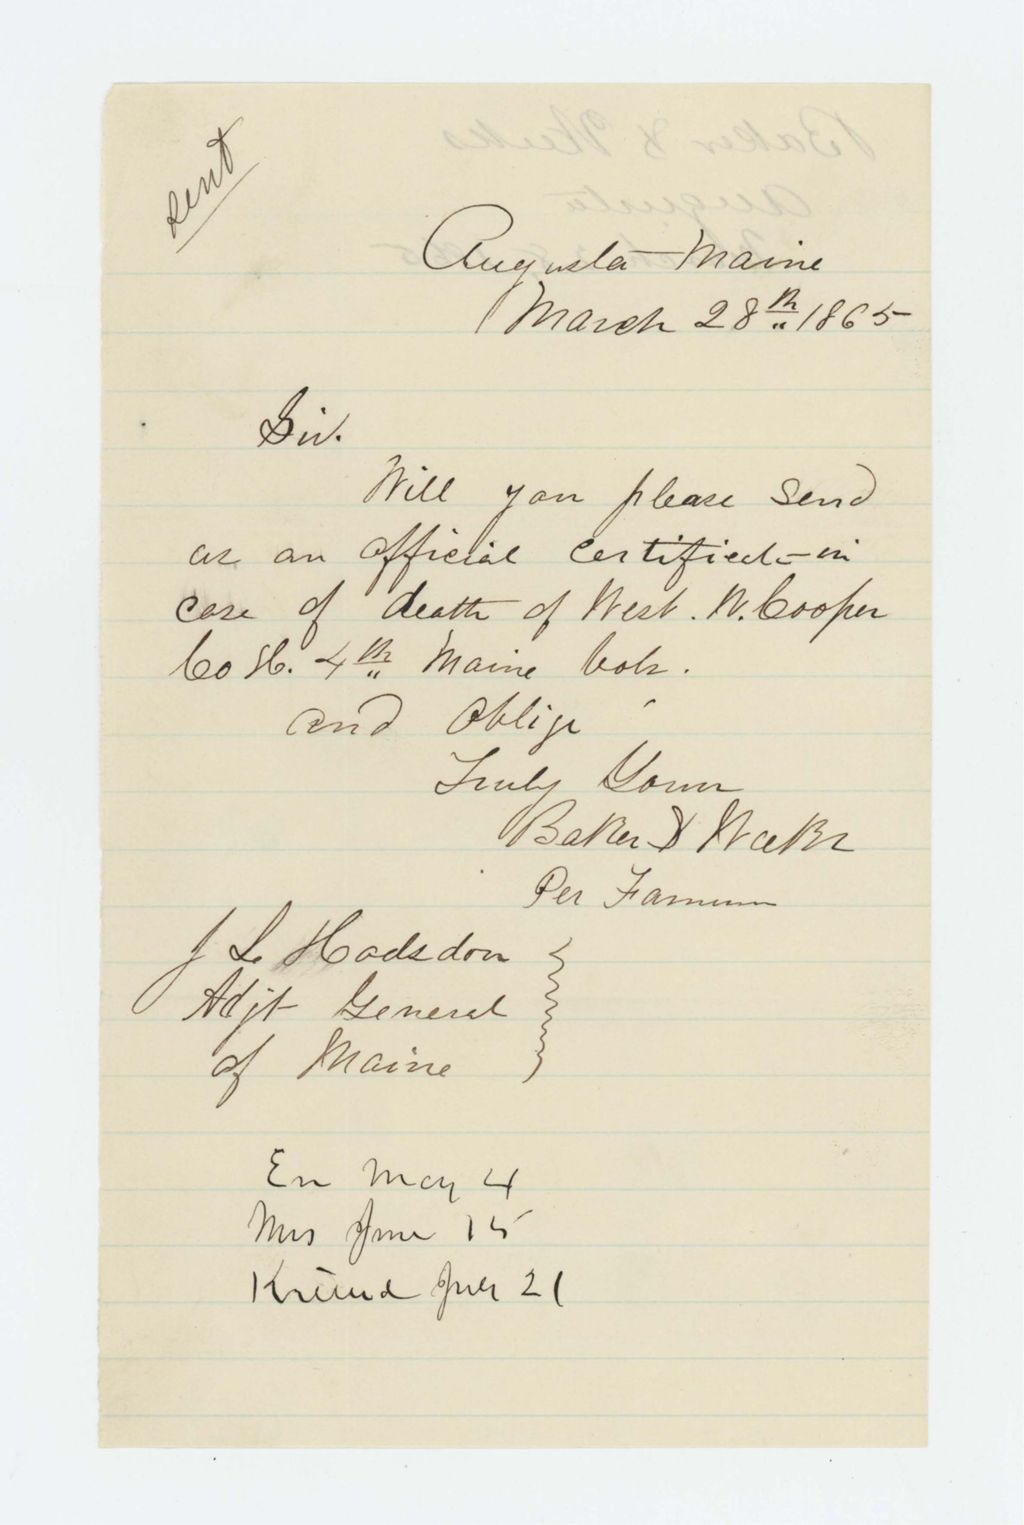 sent
Augusta Maine
March 28th 1865
Sir.
Will you please send
us an official certificate in
case of death of West. W. Cooper
Co H. 4th Maine Vols.
and Oblige
Truly Yours
Baker & Weeks
Per
J L Hodsdon
Adjt General
of Maine
En May 4
Mus June 15
Killed July 21
Baker & Weeks
Augusta